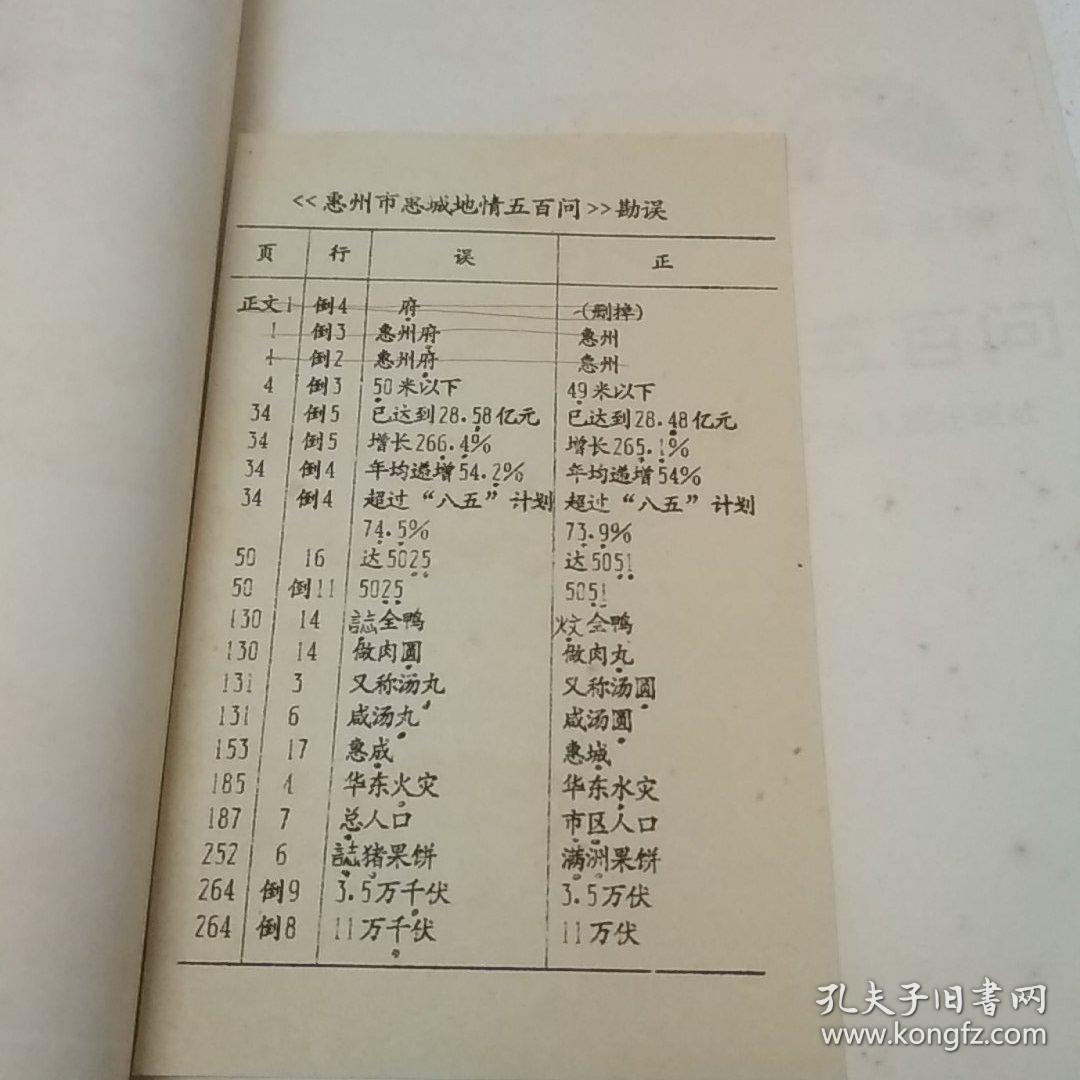 <<惠州市惠城地情五百问>>勘误
页 行 误 正
正文1 倒4 府 (删掉)
1 倒3 惠州府 惠州
1 倒2 惠州府 惠州
4 倒3 50米以下 49米以下
34 倒5 已达到28.58亿元 已达到28.48亿元
34 倒5 增长266.4% 增长265.1%
34 倒4 年均递增54.2% 年均递增54%
34 倒4 超过“八五”计划 超过“八五”计划
74.5% 73.9%
50 16 达5025 达5051
50 倒11 5025 5051
130 14 誌全鸭 炆全鸭
130 14 做肉圆 做肉丸
131 3 又称汤丸 又称汤圆
131 6 咸汤丸 咸汤圆
153 17 惠咸 惠城
185 4 华东火灾 华东水灾
187 7 总人口 市区人口
252 6 誌猪果饼 满洲果饼
264 倒9 3.5万千伏 3.5万伏
264 倒8 11万千伏 11万伏
孔夫子旧書网
www.kongfz.com